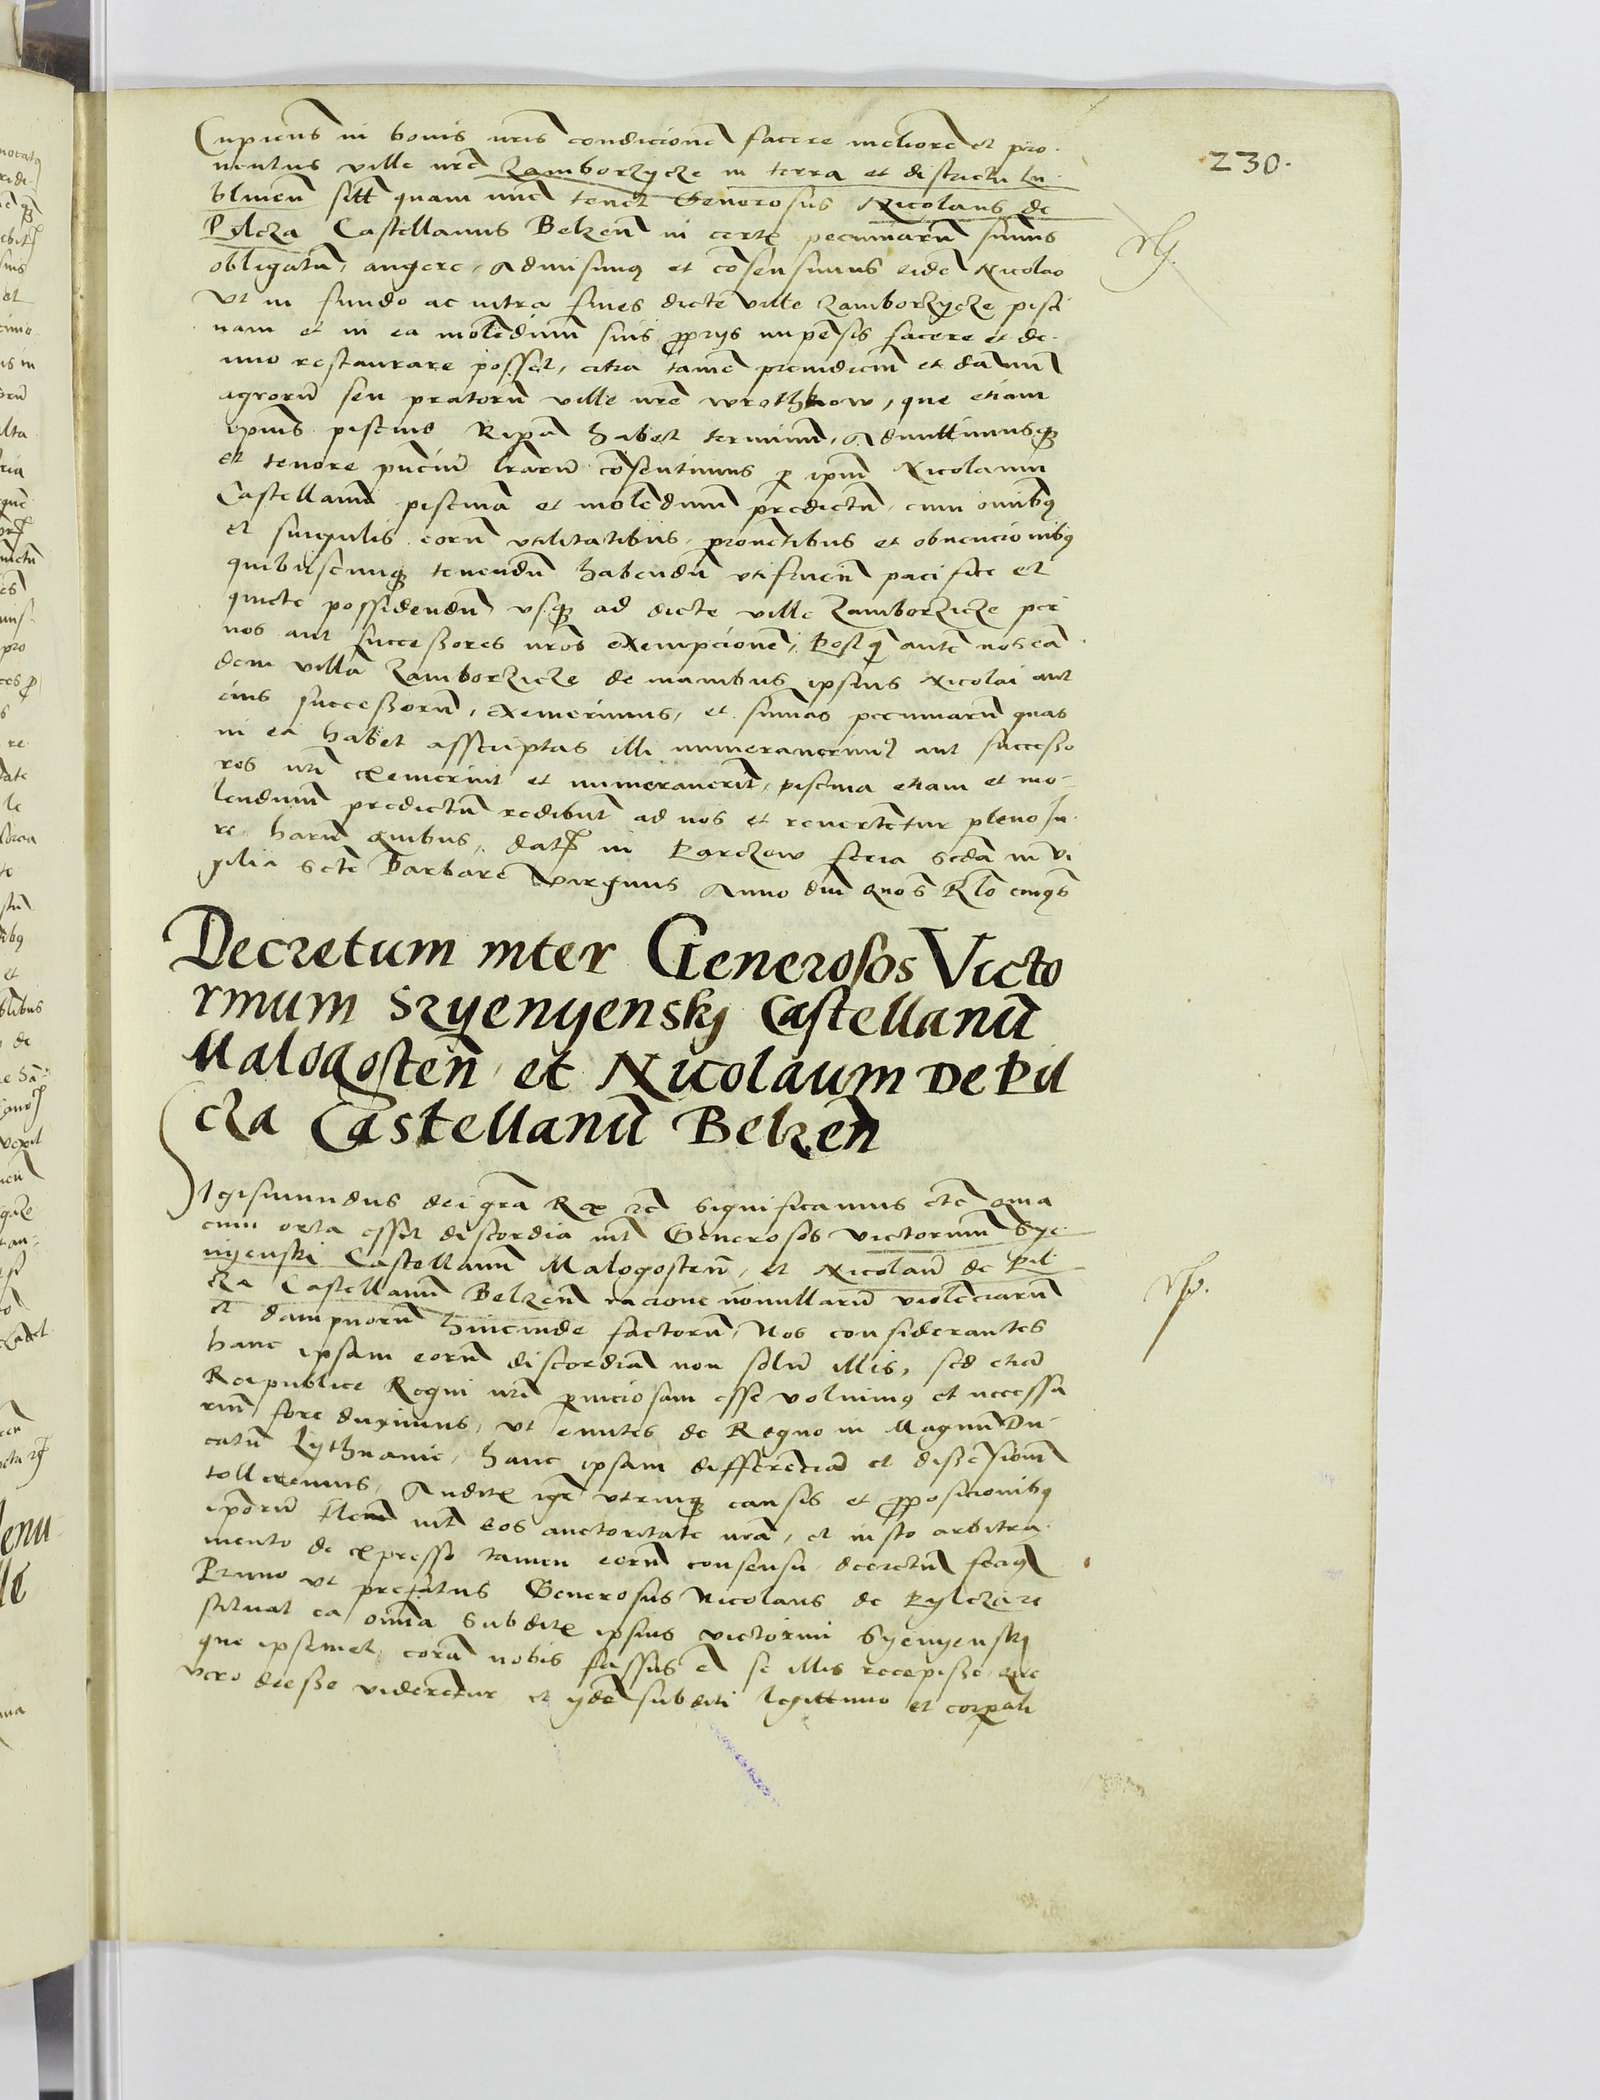 230.
Cupiens in bonis nris condicionē facere meliorē et pro
uentus ville nrē Zamborzycze in terra et districtu Lu
blinen̄ sitt quam nunc tenet Generosus Nicolaus de
Pylcza Castellanus Belzen̄ in certis pecuniarū sumis
obligatā, augere, Admisimus et cōsensimus eidē Nicolao
Vt in fundo ac intra fines dicte ville Zamborzycze pisci
nam et in ea molēdinū suis proprijs impēsis facere et de
nuo restaurare posset, citra tamē preiudiciū et damnū
agrorū seu pratorū ville nrē wrothkow, que etiam
ipius piscine Ripā habet terminū, Admittimusque
et tenore pn̄ciū lrarū cōsentimus per ipm̄ Nicolaum
Castellanū piscinā et molēdinū predictū, cum omnibus
et singulis eorū vtilitatibus, prouētibus et obuencionibus
quibuscunque tenendū habendū vtifruen̄ pacifice et
quiete possidendū vsque ad dicte ville Zamborzicze per
nos aut successores nros exempcionē, Postq̄ autē nos eā
dem villā Zamborzicze de manibus ipsius Nicolai aut
eius successorū, exemerimus, et sumas pecuniarū quas
in ea habet asscriptas illi numerauerimus aut successo
res nri exemerint et numerauerīt, piscina etiam et mo-
lendinū predictū redibūt ad nos et reuertētur pleno iu
re harū quibus, dat in Parczow feria scdā in vi
gilia sctē Barbare virginis Anno dni quo sup
Decretum inter Generosos Victo
rinum Szyenyenskj Castellanū
Malogosten̄ et Nicolaum De Pil
cza Castellanū Belzen̄
Sigismundus dei grā Rex etc̄ significamus etc̄ quia
cum orta esset discordia int̄ Generosos victorinū Sye
nyenski Castellanū Malogosten̄, et Nicolaū de Pil
cza Castellanū Belzen̄ racione nōnullarū violēciarū
et dampnorū hincinde factorū, Nos considerantes
hanc ipsam eorū discordiā non solū illis, sed etiā
Reipublice Regni nri perniciosam esse voluimus et necessa
riū fore duximus, vt euntes de Regno in Magnū Du
catū Lythuanie, hanc ipsam differēciā et dissēsionē
tolleremus, Auditis igr̄ vtriusque causis et proposicionibus
iporū int̄ eos auctoritate nrā, et iusto arbitra
mento de expresso tamen eorū consensu decretū fecimus
Primo vt prefatus Generosus Nicolaus de Pylcza re
stituat ea om̄ia subditis ipsius victorini Syenyenskj
que ipsemet corā nobis fassus ē se illis recepisse, que
vero deesse viderētur et ijdē subditi legittimo et corpali